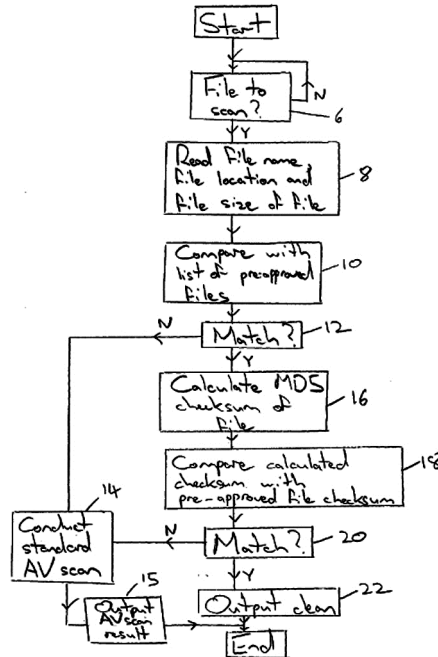 Start
File to
scan?
N
6
Y
Read File name,
file location and
file size of file
8
Compare with
list of pre-approved
files
10
N
Match?
12
Y
Calculate MD5
checksum of
file
16
Compare calculated
checksum with
pre-approved file checksum
18
14
Conduct
standard
AV scan
N
Match?
20
Y
15
Output
AV scan
result
Output clean
22
End